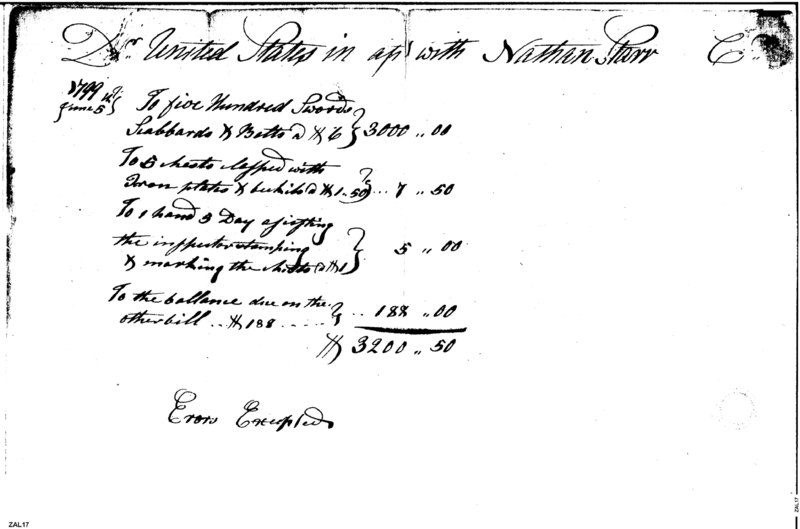 Dr. United States in apt with Nathan Starr Cr.
1799
June 5th
To five Hundred Swords
Scabbards & Belts @ $6 } 3000 ,, 00
To 5 chests clasped with
Iron plates & @ $1.50 } ... 7 ,, 50
To 1 hand 5 Day assisting
the inspector stamping } 5 ,, 00
& marking the chests @ $1
To the ballance due on the
other bill .. $188 ..... } .. 188 ,, 00
$ 3200 ,, 50
Erors Excepted
ZAL17
ZAL17